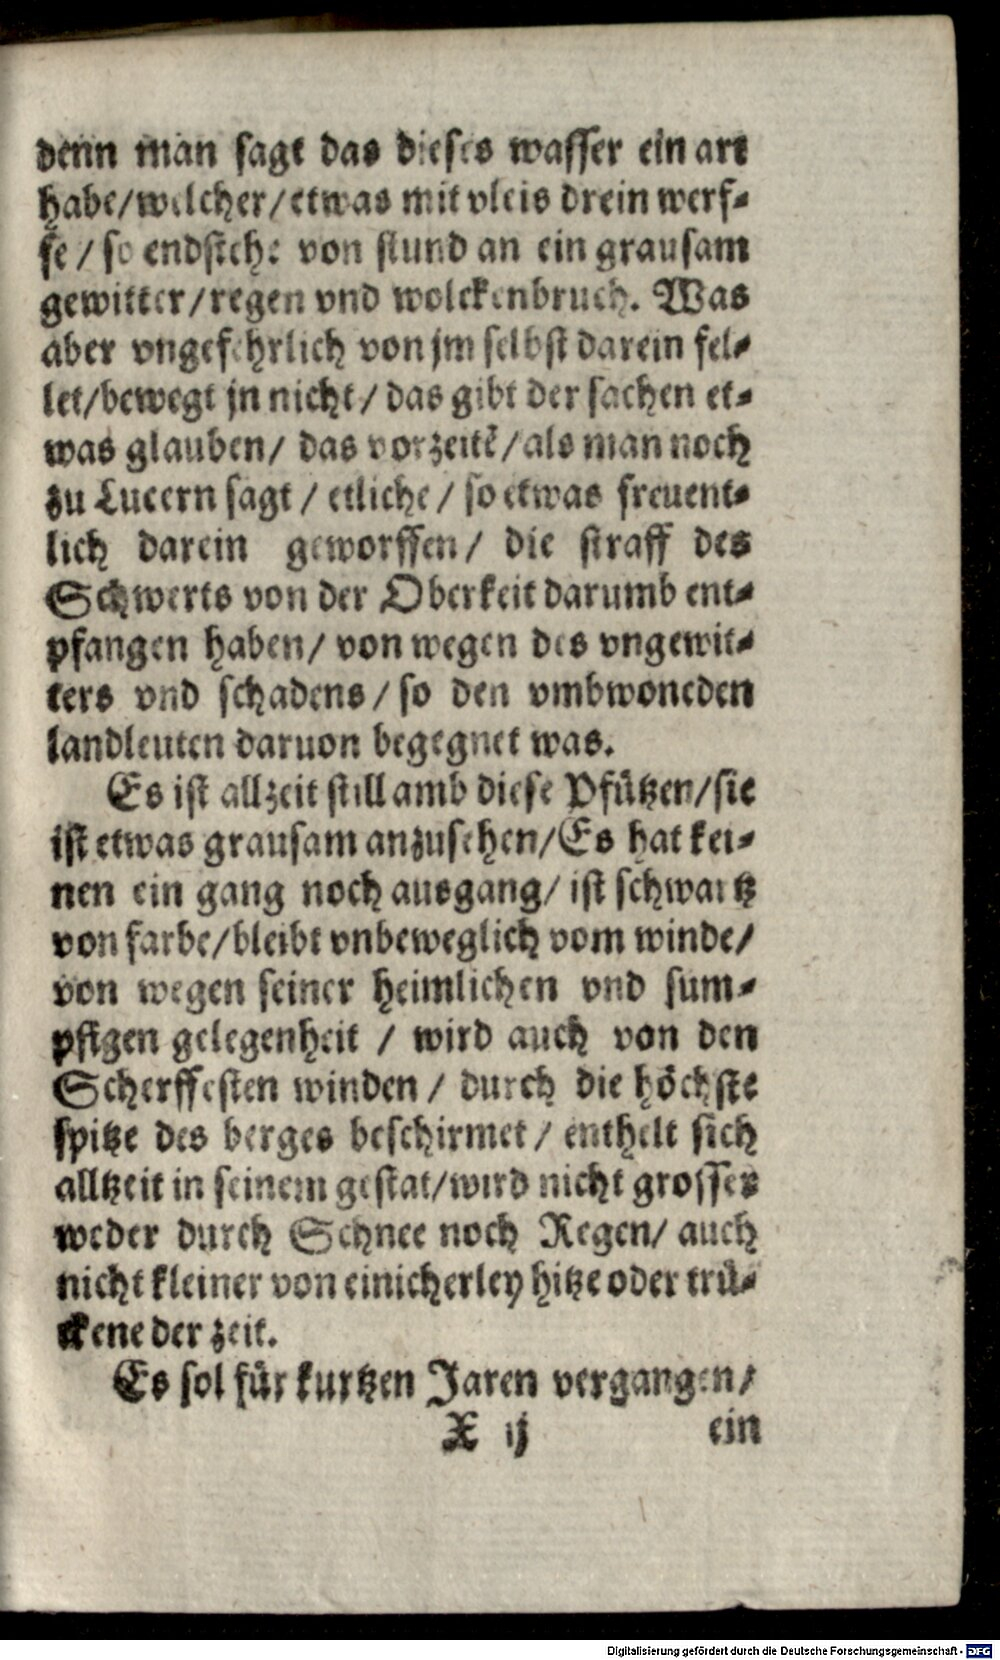 denn man sagt das dieses wasser ein art
habe/welcher/etwas mit vleis drein werf-
fe / so endsteht von stund an ein grausam
gewitter/regen vnd wolckenbruch. Was
aber vngefehrlich von jm selbst darein fel-
let/bewegt jn nicht/ das gibt der sachen et-
was glauben/ das vorzeitē/als man noch
zu Lucern sagt / etliche / so etwas freuent-
lich darein geworffen/ die straff des
Schwerts von der Oberkeit darumb ent-
pfangen haben/ von wegen des vngewit-
ters vnd schadens/so den vmbwoneden
landleuten daruon begegnet was.
Es ist allzeit still amb diese Pfützen/sie
ist etwas grausam anzusehen/Es hat kei-
nen ein gang noch ausgang/ ist schwartz
von farbe/bleibt vnbeweglich vom winde/
von wegen seiner heimlichen vnd sum-
pfigen gelegenheit / wird auch von den
Scherffesten winden / durch die höchste
spitze des berges beschirmet/ enthelt sich
alltzeit in seinem gestat/wird nicht grosser
weder durch Schnee noch Regen/ auch
nicht kleiner von einicherley hitze oder trü-
ckene der zeit.
Es sol für kurtzen Jaren vergangen/
X ij ein
Digitalisierung gefördert durch die Deutsche Forschungsgemeinschaft - DFG